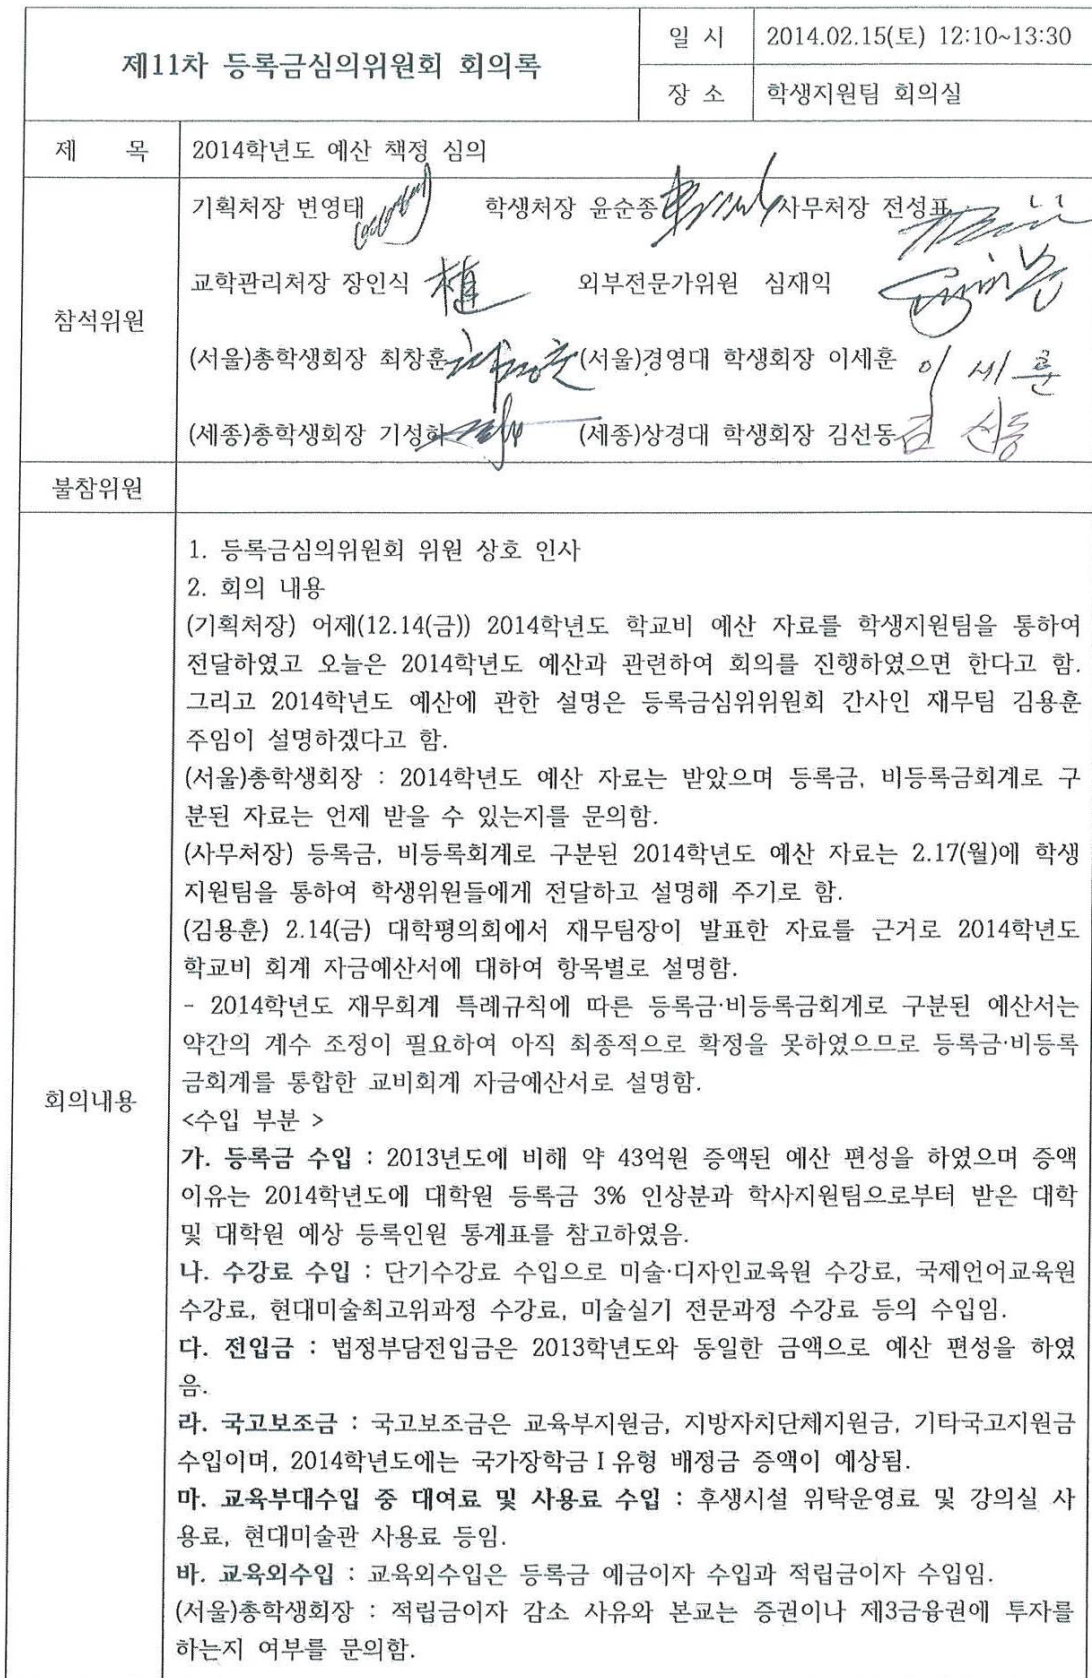 제11차 등록금심의위원회 회의록
일 시 2014.02.15(토) 12:10~13:30
장 소 학생지원팀 회의실
제 목 2014학년도 예산 책정 심의
참석위원
기획처장 변영태 학생처장 윤순종 사무처장 전성표
교학관리처장 장인식 외부전문가위원 심재익
(서울)총학생회장 최창훈 (서울)경영대 학생회장 이세훈 이세훈
(세종)총학생회장 기성하 (세종)상경대 학생회장 김선동 김선동
불참위원
회의내용
1. 등록금심의위원회 위원 상호 인사
2. 회의 내용
(기획처장) 어제(12.14(금)) 2014학년도 학교비 예산 자료를 학생지원팀을 통하여
전달하였고 오늘은 2014학년도 예산과 관련하여 회의를 진행하였으면 한다고 함.
그리고 2014학년도 예산에 관한 설명은 등록금심위위원회 간사인 재무팀 김용훈
주임이 설명하겠다고 함.
(서울)총학생회장 : 2014학년도 예산 자료는 받았으며 등록금, 비등록금회계로 구
분된 자료는 언제 받을 수 있는지를 문의함.
(사무처장) 등록금, 비등록회계로 구분된 2014학년도 예산 자료는 2.17(월)에 학생
지원팀을 통하여 학생위원들에게 전달하고 설명해 주기로 함.
(김용훈) 2.14(금) 대학평의회에서 재무팀장이 발표한 자료를 근거로 2014학년도
학교비 회계 자금예산서에 대하여 항목별로 설명함.
- 2014학년도 재무회계 특례규칙에 따른 등록금·비등록금회계로 구분된 예산서는
약간의 계수 조정이 필요하여 아직 최종적으로 확정을 못하였으므로 등록금·비등록
금회계를 통합한 교비회계 자금예산서로 설명함.
<수입 부분 >
가. 등록금 수입 : 2013년도에 비해 약 43억원 증액된 예산 편성을 하였으며 증액
이유는 2014학년도에 대학원 등록금 3% 인상분과 학사지원팀으로부터 받은 대학
및 대학원 예상 등록인원 통계표를 참고하였음.
나. 수강료 수입 : 단기수강료 수입으로 미술·디자인교육원 수강료, 국제언어교육원
수강료, 현대미술최고위과정 수강료, 미술실기 전문과정 수강료 등의 수입임.
다. 전입금 : 법정부담전입금은 2013학년도와 동일한 금액으로 예산 편성을 하였
음.
라. 국고보조금 : 국고보조금은 교육부지원금, 지방자치단체지원금, 기타국고지원금
수입이며, 2014학년도에는 국가장학금Ⅰ유형 배정금 증액이 예상됨.
마. 교육부대수입 중 대여료 및 사용료 수입 : 후생시설 위탁운영료 및 강의실 사
용료, 현대미술관 사용료 등임.
바. 교육외수입 : 교육외수입은 등록금 예금이자 수입과 적립금이자 수입임.
(서울)총학생회장 : 적립금이자 감소 사유와 본교는 증권이나 제3금융권에 투자를
하는지 여부를 문의함.